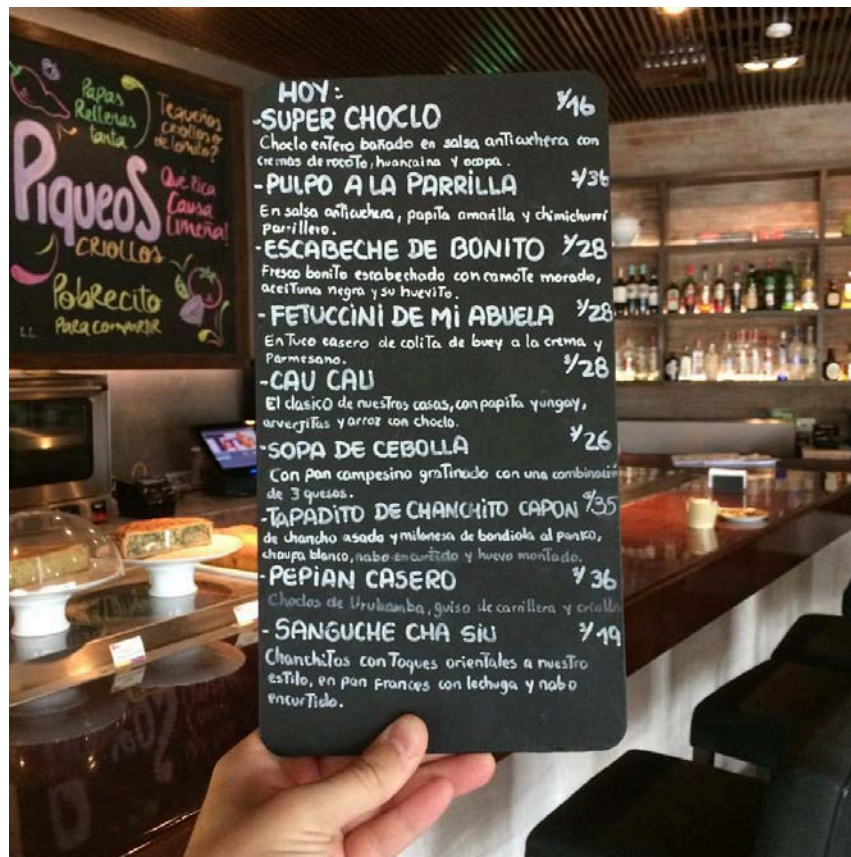 Papas
Rellenas
tanta
Tequeños
criollos o
de lomito?
PiqueoS
CRIOLLOS
Qué Rica
Causa
Limeña!
Pobrecito
PARA COMPARTIR
L.L.
HOY:
-SUPER CHOCLO S/16
Choclo entero bañado en salsa anticuchera con
cremas de rocoto, huancaina y ocopa.
-PULPO A LA PARRILLA S/36
En salsa anticuchera, papita amarilla y chimichurri
parrillero.
-ESCABECHE DE BONITO S/28
Fresco bonito escabechado con camote morado,
aceituna negra y su huevito.
-FETUCCINI DE MI ABUELA S/28
En Tuco casero de colita de buey a la crema y
Parmesano.
-CAU CAU S/28
El clasico de nuestras casas, con papita yungay,
arvergitas y arroz con choclo.
-SOPA DE CEBOLLA S/26
Con pan campesino gratinado con una combinación
de 3 quesos.
-TAPADITO DE CHANCHITO CAPON S/35
de chancho asado y milanesa de bondiola al panko,
chaufa blanco, nabo encurtido y huevo montado.
-PEPIAN CASERO S/36
Choclos de Urubamba, guiso de carrillera y criolla
-SANGUCHE CHA SIU S/19
Chanchitos con Toques orientales a nuestro
estilo, en pan frances con lechuga y nabo
encurtido.